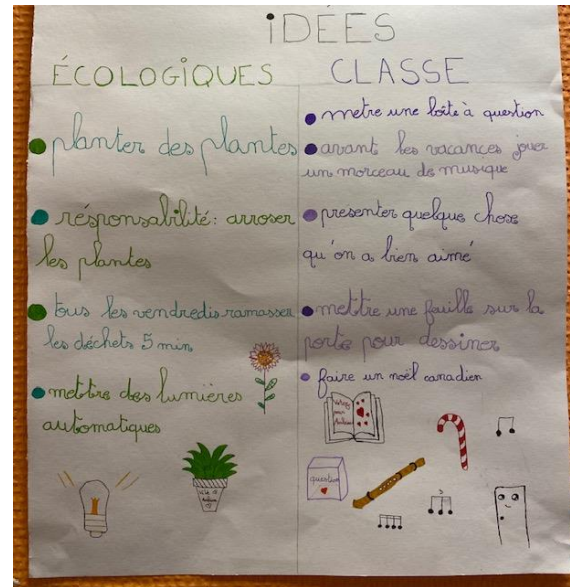 IDÉES
ÉCOLOGIQUES
planter des plantes
résponsabilité: arroser
les plantes
tous les vendredis ramasser
les déchets 5 min
mettre des lumières
automatiques
CLASSE
metre une boîte à question
avant les vacances jouer
un morceau de musique
presenter quelque chose
qu'on a bien aimé
mettre une feuille sur la
porte pour dessiner
faire un noël canadien
question